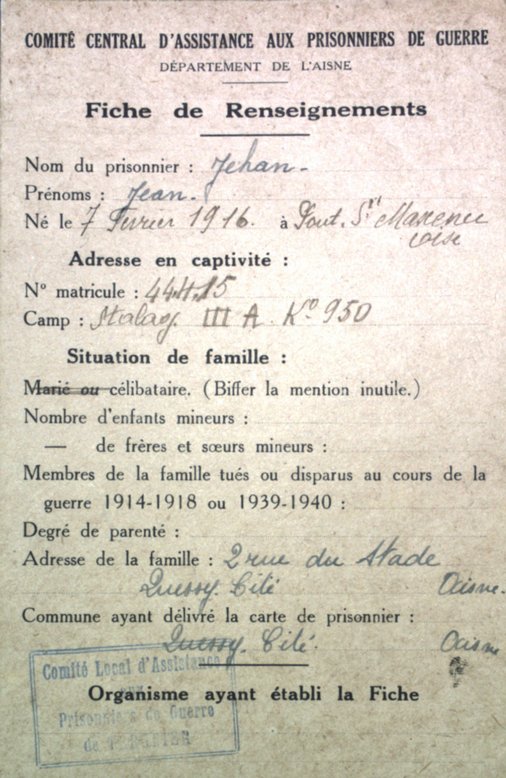 COMITÉ CENTRAL D'ASSISTANCE AUX PRISONNIERS DE GUERRE
DÉPARTEMENT DE L'AISNE
Fiche de Renseignements
Nom du prisonnier : Jehan
Prénoms : Jean
Né le 7 Février 1916. à Pont. Ste Maxence
oise
Adresse en captivité :
N° matricule : 44415
Camp : Stalag III A. Ko 950
Situation de famille :
Marié ou célibataire. (Biffer la mention inutile.)
Nombre d'enfants mineurs :
— de frères et sœurs mineurs :
Membres de la famille tués ou disparus au cours de la
guerre 1914-1918 ou 1939-1940 :
Degré de parenté :
Adresse de la famille : 2 rue du Stade
Quessy. Cité Aisne.
Commune ayant délivré la carte de prisonnier :
Quessy. Cité. Aisne
Comité Local d'Assistance
Prisonniers de Guerre
Organisme ayant établi la Fiche